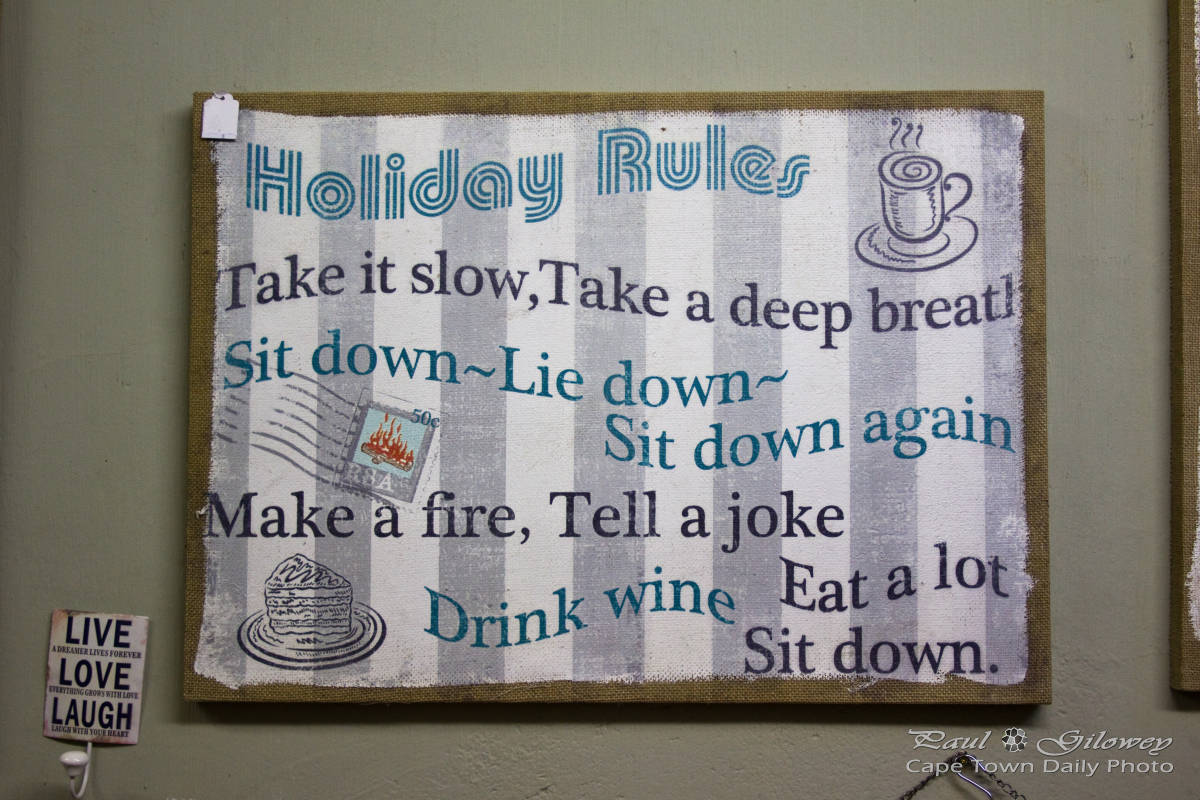 Holiday Rules
Take it slow, Take a deep breath
Sit down~Lie down~
Sit down again
50c
RSA
Make a fire, Tell a joke
Eat a lot
Drink wine
Sit down.
LIVE
A DREAMER LIVES FOREVER
LOVE
EVERYTHING GROWS WITH LOVE
LAUGH
LAUGH WITH YOUR HEART
Paul Gilowey
Cape Town Daily Photo